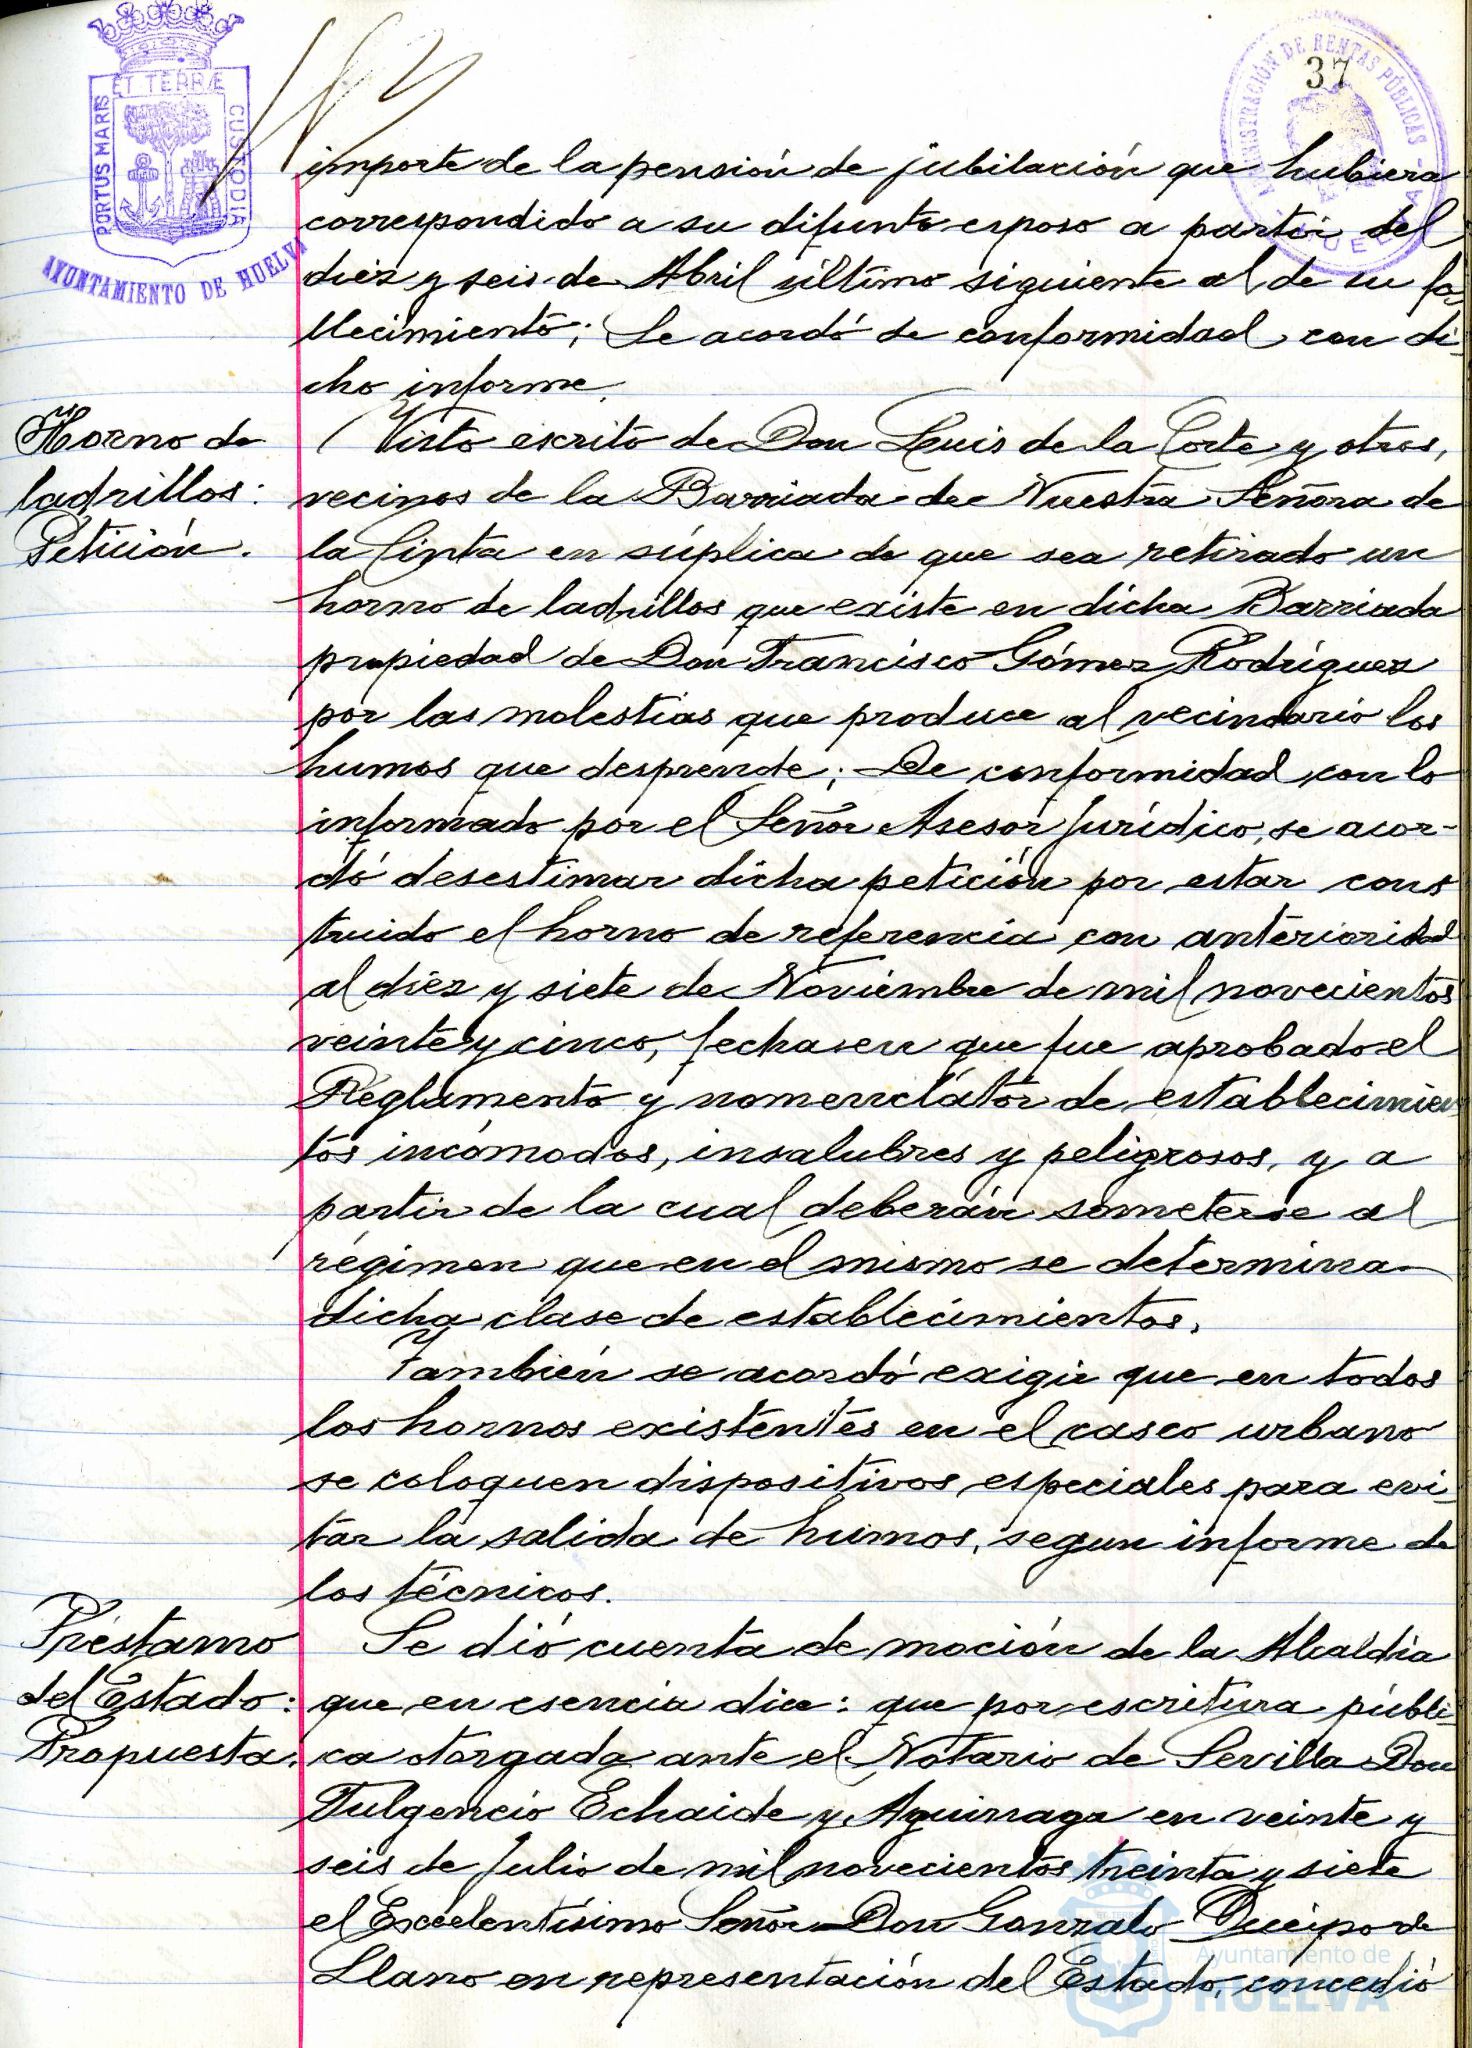 ET TERRÆ
PORTUS MARIS
CUSTODIA
AYUNTAMIENTO DE HUELVA
ADMINISTRACIÓN DE RENTAS PÚBLICAS
HUELVA
37
importe de la pensión de jubilación que hubiera
correspondido a su difunto esposo a partir del
diez y seis de Abril último siguiente al de su fa-
llecimiento; Se acordó de conformidad con di-
cho informe.
Horno de
ladrillos:
Petición.
Visto escrito de Don Luis de la Corte y otros,
vecinos de la Barriada de Nuestra Señora de
la Cinta en súplica de que sea retirado un
horno de ladrillos que existe en dicha Barriada
propiedad de Don Francisco Gómez Rodríguez
por las molestias que produce al vecindario los
humos que desprende; De conformidad con lo
informado por el Señor Asesor Jurídico, se acor-
dó desestimar dicha petición por estar cons
truido el horno de referencia con anterioridad
al diez y siete de Noviembre de mil novecientos
veinte y cinco, fechasen que fue aprobado el
Reglamento y nomenclátor de establecimien
tos incómodos, insalubres y peligrosos, y a
partir de la cual deberán someterse al
régimen que en el mismo se determina
dicha clase de establecimientos.
También se acordó exigir que en todos
los hornos existentes en el casco urbano
se coloquen dispositivos especiales para evi-
tar la salida de humos, segun informe de
los técnicos.
Préstamo
del Estado:
Propuesta.
Se dió cuenta de moción de la Alcaldía
que en esencia dice: que por escritura públi-
ca otorgada ante el Notario de Sevilla Don
Fulgencio Echaide y Aguinaga en veinte y
seis de Julio de mil novecientos treinta y siete
el Excelentísimo Señor Don Gonzalo Queipo de
Llano en representación del Estado, concedió
Ayuntamiento de
HUELVA